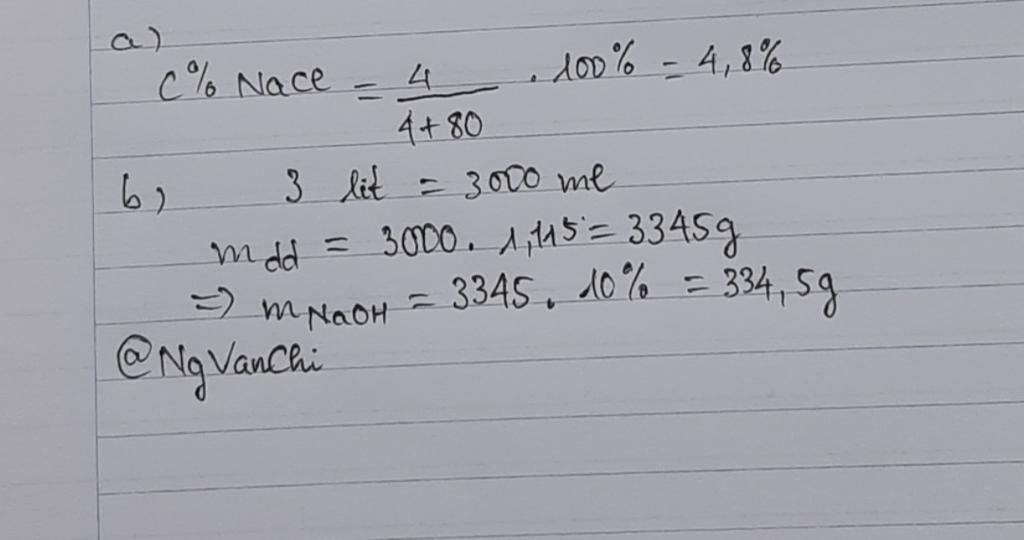 a)
C% NaCl = 4 / 4+80 . 100% = 4,8%
b) 3 lit = 3000 ml
mdd = 3000. 1,115 = 3345g
=> mNaOH = 3345. 10% = 334,5g
@NgVanChi